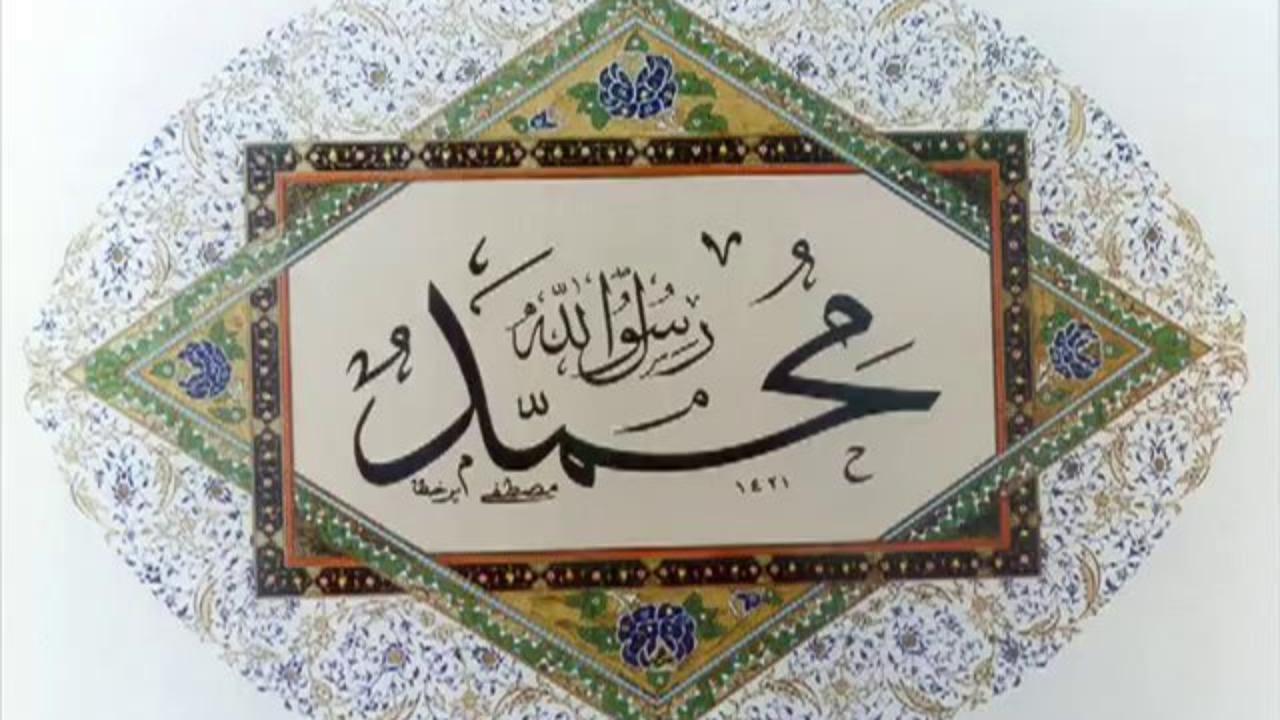 مُحَمَّدٌ
رَسُولُ اللهِ
١٤٢١
مصطفى